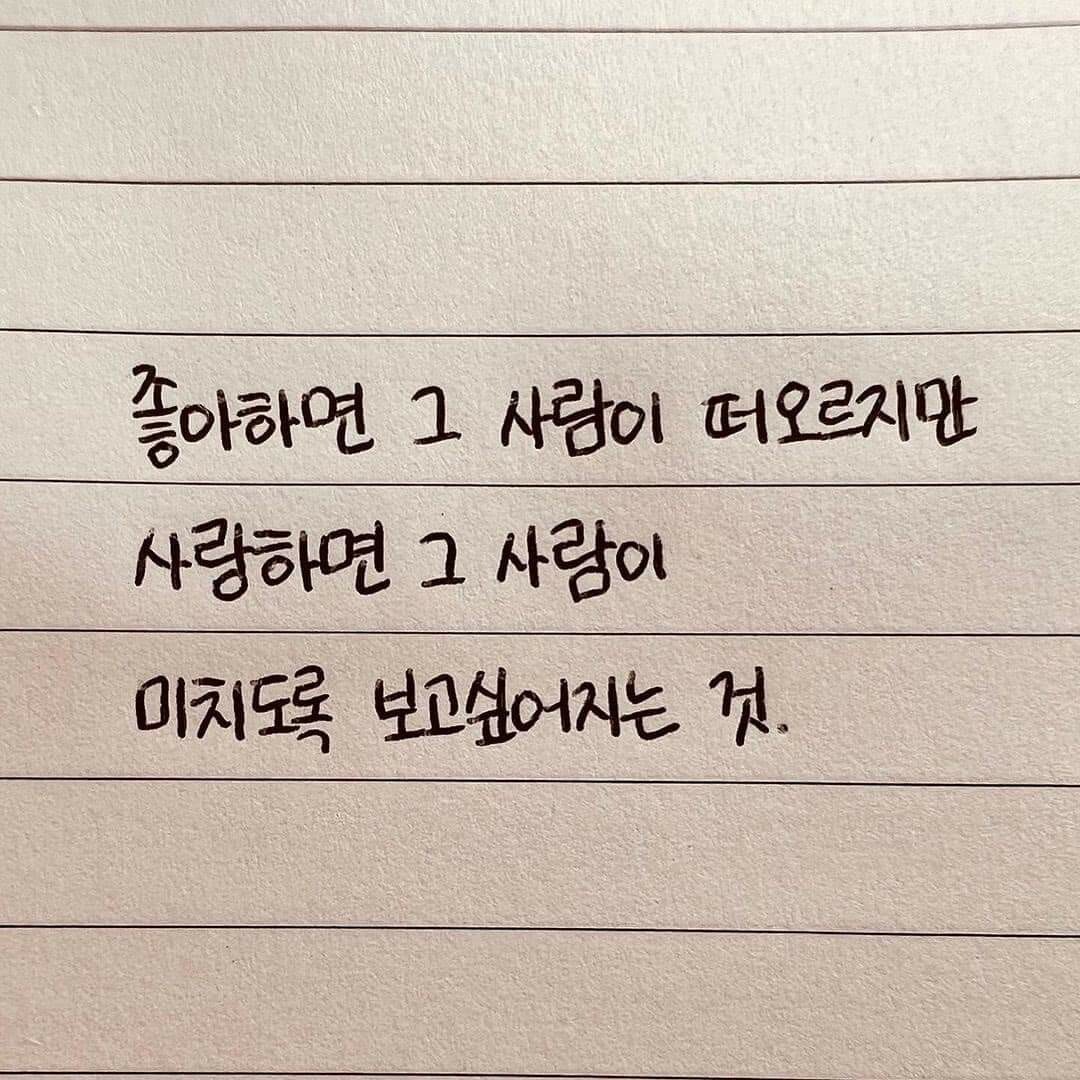 좋아하면 그 사람이 떠오르지만
사랑하면 그 사람이
미치도록 보고싶어지는 것.